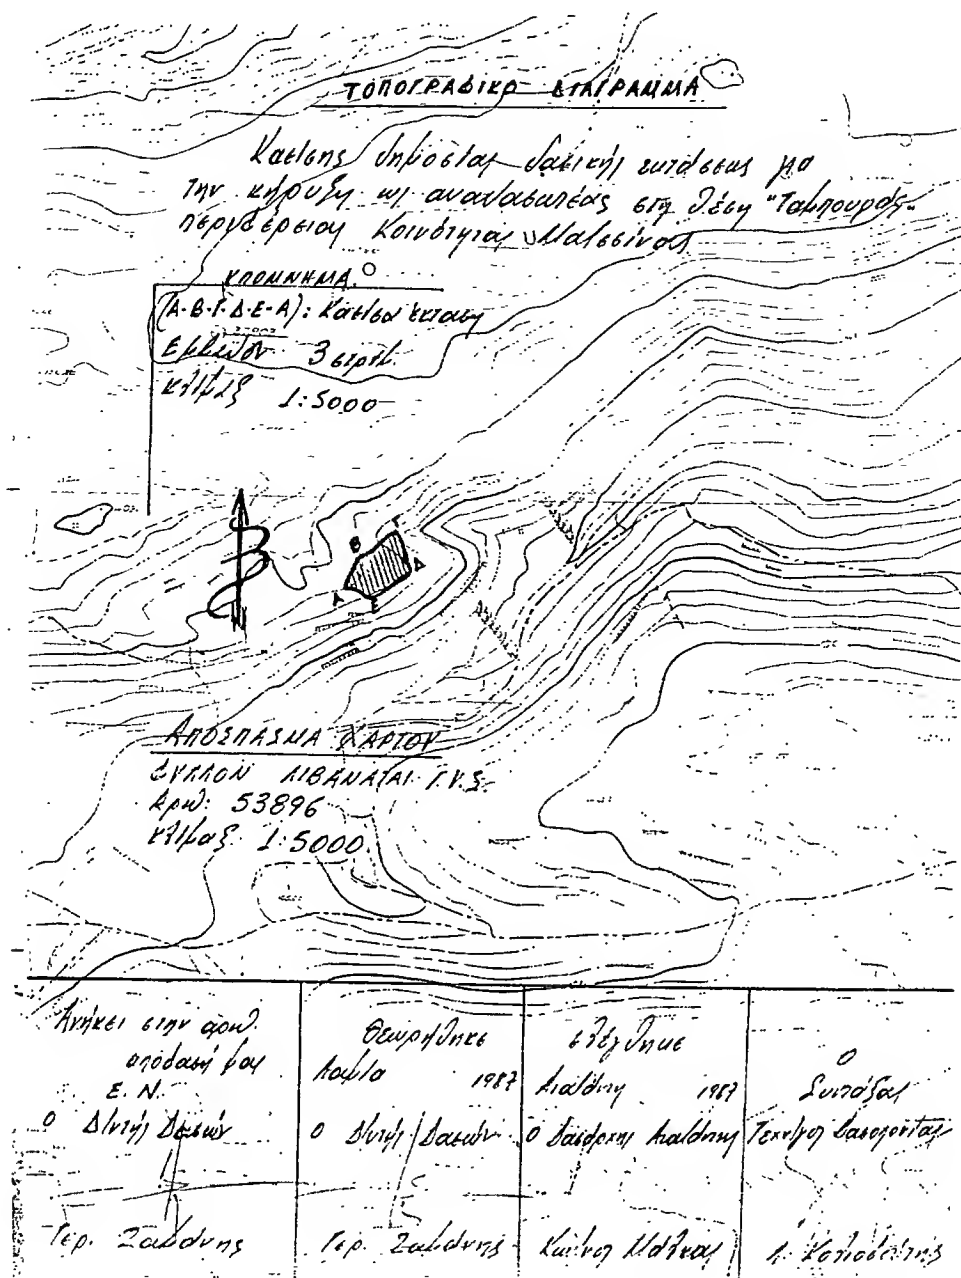 ΤΟΠΟΓΡΑΦΙΚΟ ΔΙΑΓΡΑΜΜΑ
Καείσης δημοσίας δασικής εκτάσεως για
την κήρυξη ως αναδασωτέας στη θέση "Ταμπουράς"
περιφέρειας Κοινότητας Μαλεσίνας
ΥΠΟΜΝΗΜΑ
(Α-Β-Γ-Δ-Ε-Α): Καείσα έκταση
Εμβαδόν 3 στρμ.
Κλίμαξ 1:5000
Β
Γ
Α
Δ
Ε
ΑΠΟΣΠΑΣΜΑ ΧΑΡΤΟΥ
ΦΥΛΛΟΝ ΛΙΒΑΝΑΤΑΙ Γ.Υ.Σ.
Αριθ: 53896
Κλίμαξ 1:5000
Ανήκει στην αριθ.
απόφασή μας
Ε. Ν.
Ο Δ/ντής Δασών
Γερ. Ζαμάνης
Θεωρήθηκε
Λαμία 1987
Ο Δ/ντής Δασών
Γερ. Ζαμάνης
Ελέγχθηκε
Αταλάντη 1987
Ο Δασάρχης Αταλάντης
Ο
Συντάξας
Τεχν/γος Δασοπονίας